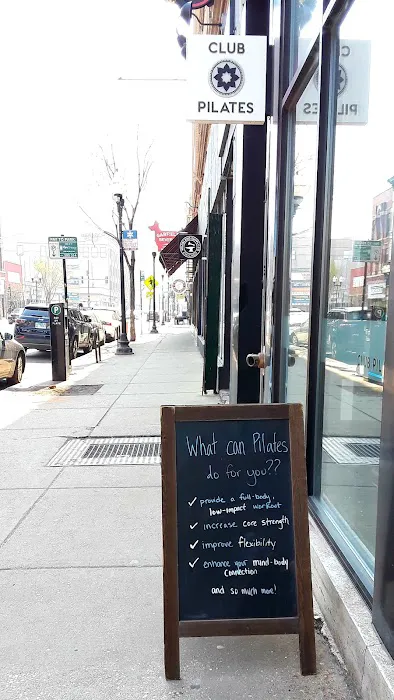 CLUB
PILATES
What can Pilates
do for you??
✓ provide a full-body,
low-impact workout
✓ increase core strength
✓ improve flexibility
✓ enhance your mind-body
connection
and so much more!